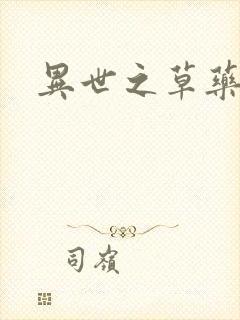 異世之草藥
司嶺